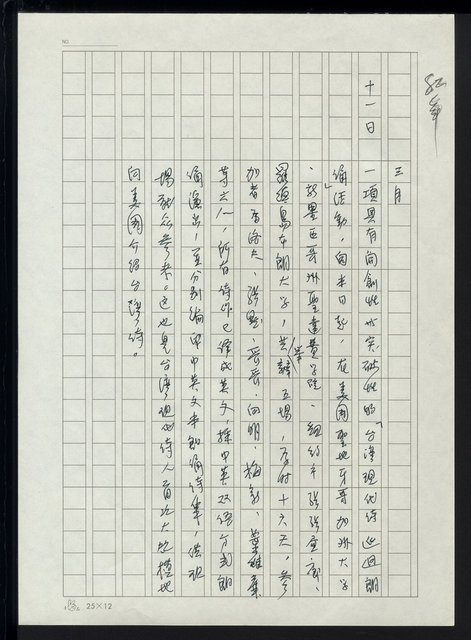 NO.
三月
十一日 一項具有開創性或突破性的「台灣現代詩巡迴朗
誦」活動，自本日起，在美國聖地牙哥加州大學
、新墨西哥州聖達費學院、紐約市強強畫廊、
羅德島布朗大學，共舉辦五場，為時十六天，參
加者有洛夫、張默、管管、向明、梅新、葉維廉
等六人，所有詩作已譯成英文，採中英双語方式朗
誦演出，並分別編印中英文本朗誦詩集，供現
場聽眾參考。這也是台灣現代詩人首次大規模地
向美國介紹台灣詩。
25×12